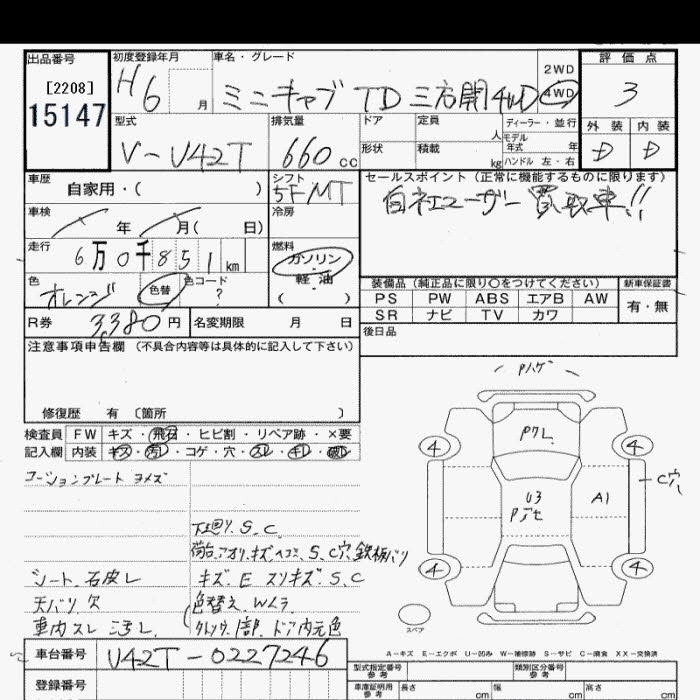 出品番号 初度登録年月 車名・グレード 評価点
[2208] H6 月 ミニキャブ TD 三方開 4WD 2WD 4WD 3
15147
型式 排気量 ドア 定員 人 ディーラー・並行 外装 内装
V-U42T 660 cc 形状 積載 kg モデル年式 年 ハンドル 左・右 D D
車歴 自家用・( ) シフト 5F MT セールスポイント(正常に機能するものに限ります)
自社ユーザー買取車!!
車検 年 月( 日) 冷房
走行 6万0千851km 燃料 ガソリン・軽油 ( )
色 オレンジ 色替 色コード ?
装備品(純正品に限り○をつけてください) 新車保証書
PS PW ABS エアB AW 有・無
SR ナビ TV カワ
R券 3,380円 名変期限 月 日 後日品
注意事項申告欄(不具合内容等は具体的に記入して下さい)
修復歴 有 〔箇所 〕
検査員 FW キズ・飛石・ヒビ割・リペア跡・×要
記入欄 内装 キズ・汚レ・コゲ・穴・スレ・キレ・破レ
コーションプレート ヨメズ
下廻リ S.C
荷台.アオリ.キズ.ヘコミ.S.C穴.鉄板バリ
シート.石皮レ キズ.E スリキズ.S.C
天バリ欠 色替え.Wムラ
車内スレ.ヨゴレ. 1部.ドア内元色
Pハゲ
Pワレ
4 4
U3 A1 C穴
4 4
スペア
A-キズ E-エクボ U-凹み W-補修跡 S-サビ C-腐食 XX-交換済
車台番号 U42T-0227246 型式指定番号 参考 類別区分番号 参考
登録番号 車庫証明用 参考 長さ cm 幅 cm 高さ cm